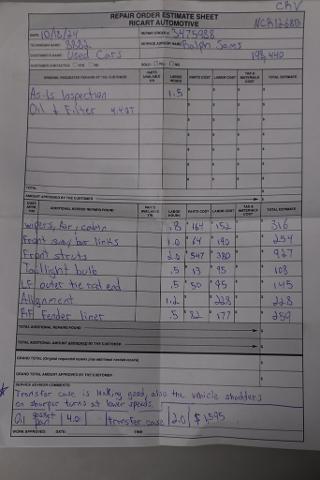 CRV
REPAIR ORDER ESTIMATE SHEET
RICART AUTOMOTIVE
DATE: 10/18/24 REPAIR ORDER #: 3475988
TECHNICIAN NAME: 3882 SERVICE ADVISOR NAME: Ralph Sams
CUSTOMER'S NAME: Used Cars 198,440
ORIGINAL REQUESTED REPAIRS BY THE CUSTOMER PARTS AVAILABLE Y/N LABOR HOURS PARTS COST LABOR COST TAX & MATERIALS COST TOTAL ESTIMATE
As-Is Inspection 1.5
Oil & Filter 4.4QT
TOTAL
AMOUNT APPROVED BY THE CUSTOMER
ADDITIONAL REPAIRS FOUND PARTS AVAILABLE Y/N LABOR HOURS PARTS COST LABOR COST TAX & MATERIALS COST TOTAL ESTIMATE
wipers, air, cabin .8 164 152 316
Front sway bar links 1.0 64 190 254
Front struts 2.0 547 380 927
Taillight bulb .5 13 95 108
LF outer tie rod end .5 50 95 145
Alignment 1.2 228 228
R/F Fender liner .5 82 177 259
TOTAL ADDITIONAL REPAIRS FOUND
TOTAL ADDITIONAL AMOUNT APPROVED BY THE CUSTOMER
GRAND TOTAL (Original requested repairs plus additional needed repairs)
GRAND TOTAL AMOUNT APPROVED BY THE CUSTOMER
SERVICE ADVISOR COMMENTS:
Transfer case is leaking good, also the vehicle shudders
on sharper turns at lower speeds.
Oil gasket pan | 4.0 | transfer case | 2.0 | $1,595
WORK APPROVED: DATE: TIME: